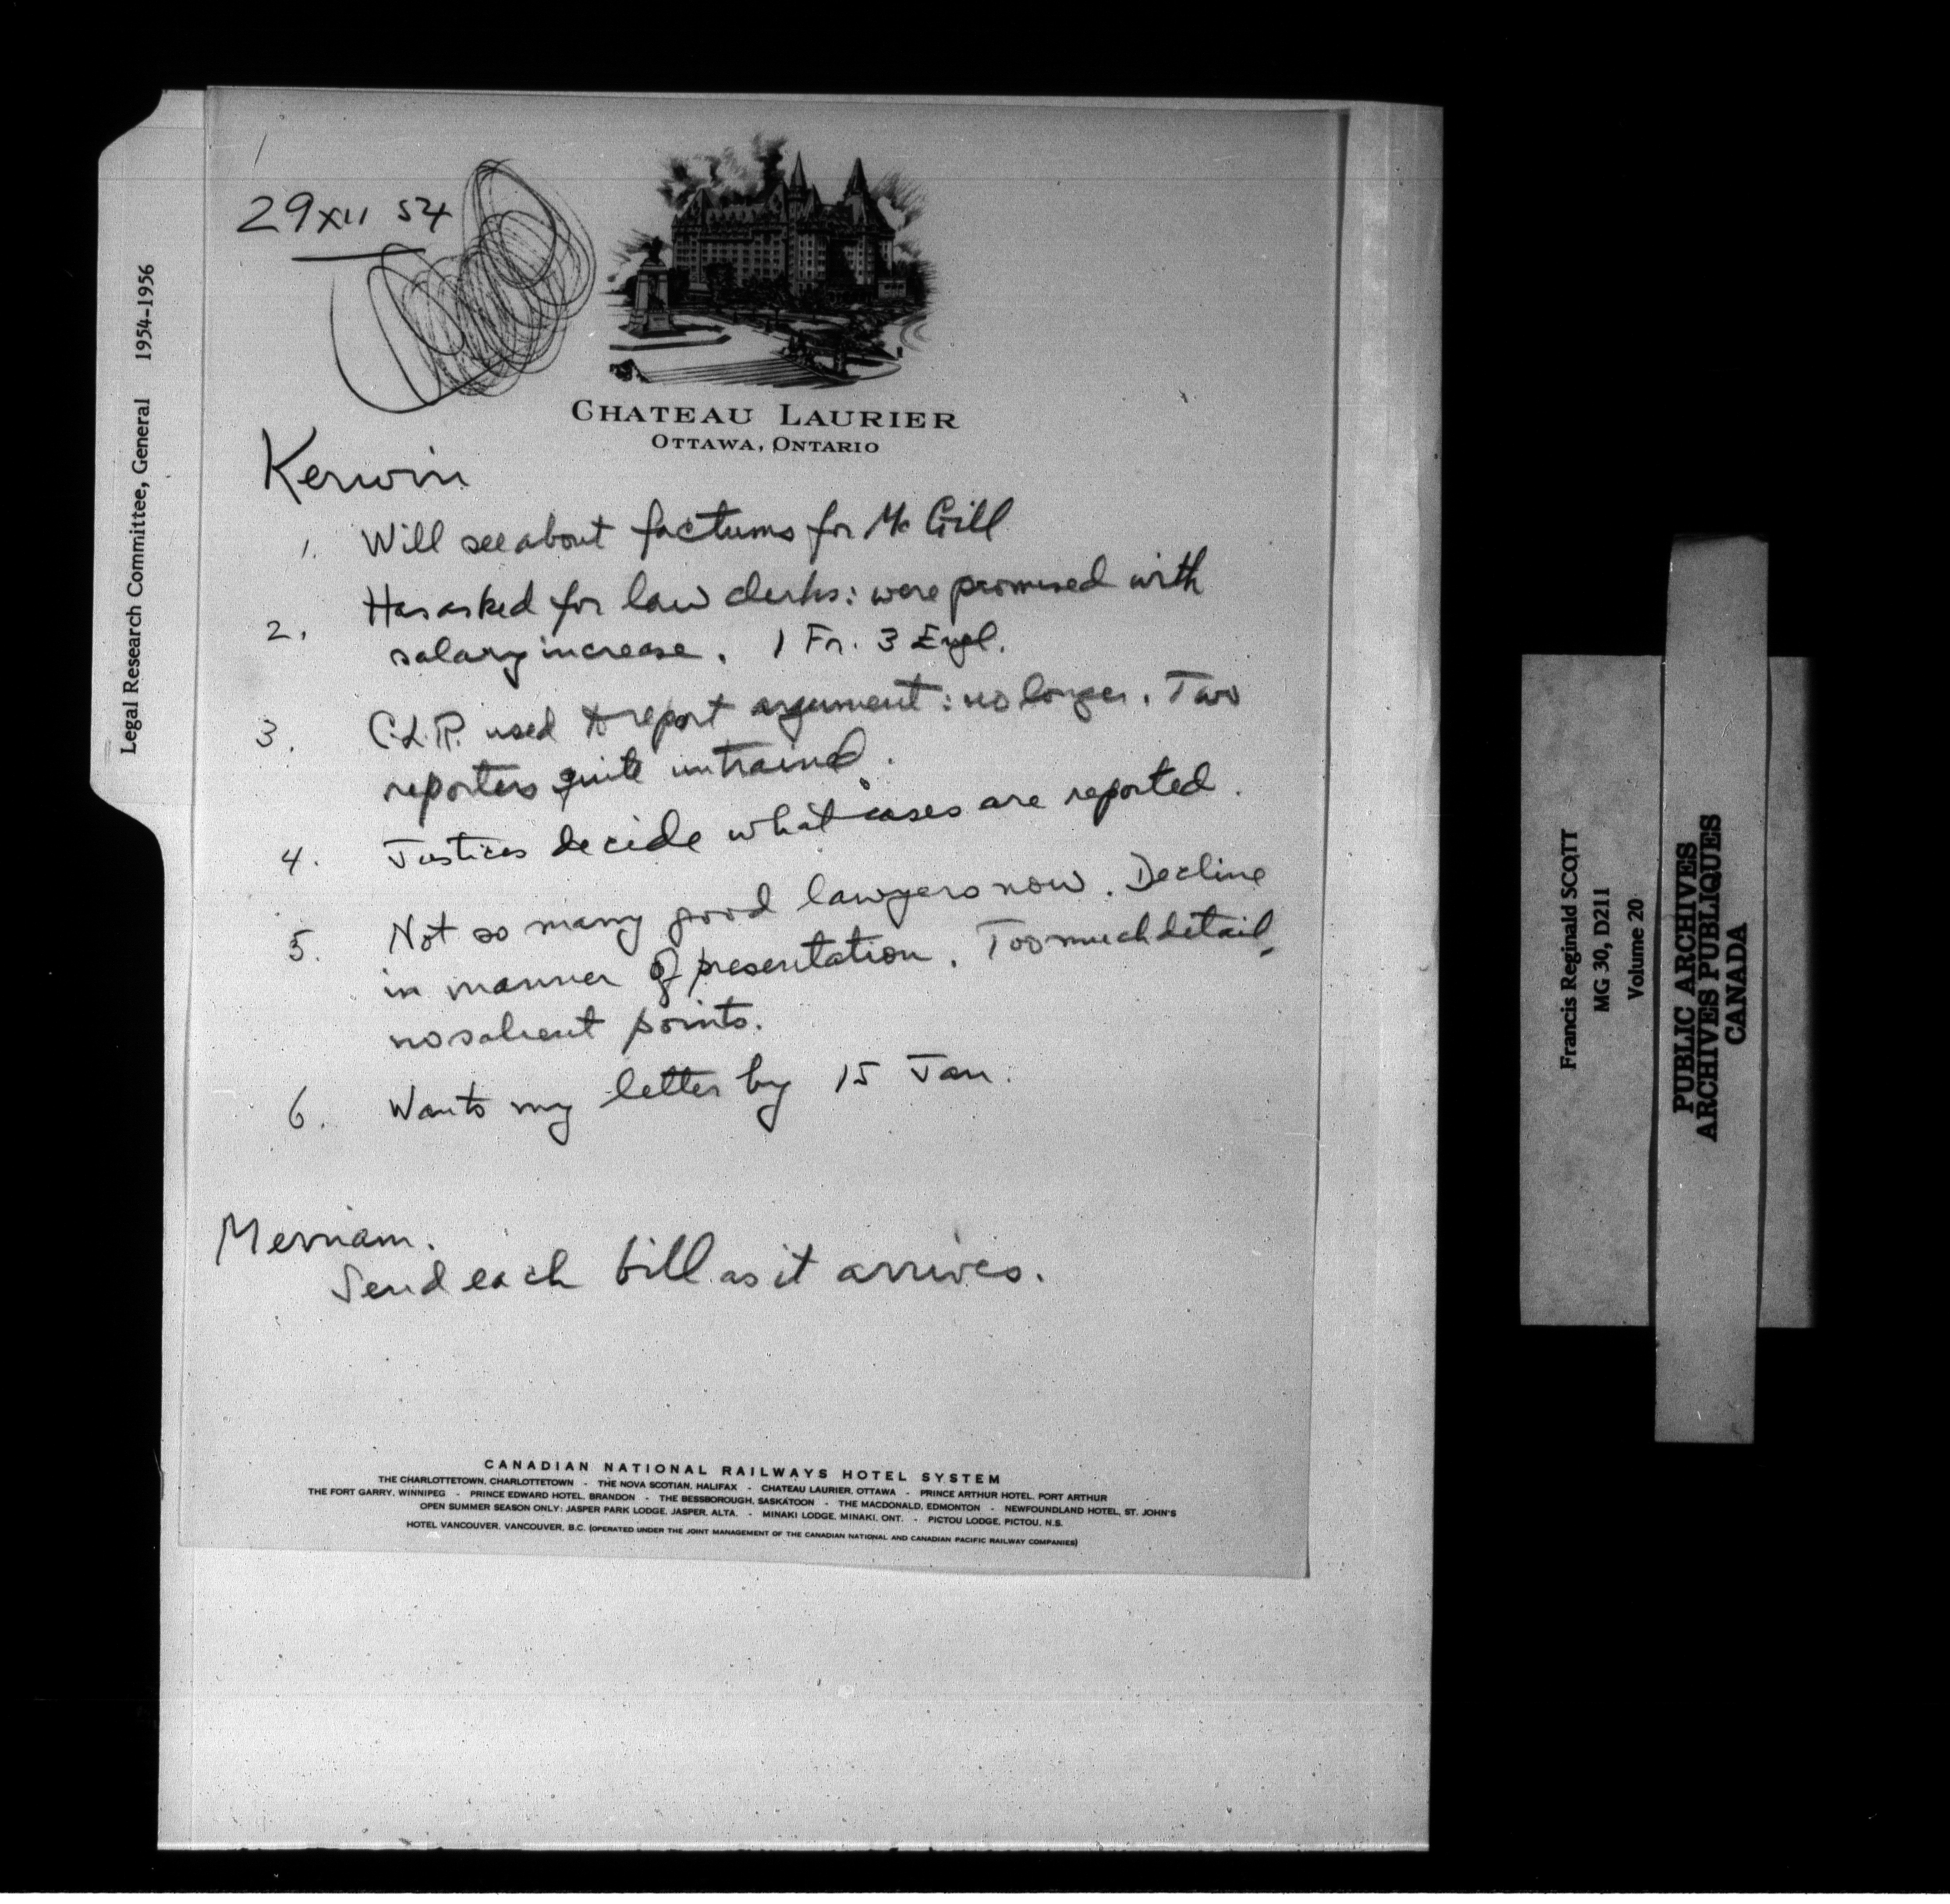 29 XII 54
CHATEAU LAURIER
OTTAWA, ONTARIO
Kerwin
1. Will see about factums for McGill
2. Has asked for law clerks: were promised with
salary increase. 1 Fr. 3 Engl.
3. C.L.R. used to report argument: no longer. Two
reporters quite untrained.
4. Justices decide what cases are reported.
5. Not so many good lawyers now. Decline
in manner of presentation. Too much detail,
no salient points.
6. Wants my letter by 15 Jan.
Merriam.
Send each bill as it arrives.
CANADIAN NATIONAL RAILWAYS HOTEL SYSTEM
THE CHARLOTTETOWN, CHARLOTTETOWN - THE NOVA SCOTIAN, HALIFAX - CHATEAU LAURIER, OTTAWA - PRINCE ARTHUR HOTEL, PORT ARTHUR
THE FORT GARRY, WINNIPEG - PRINCE EDWARD HOTEL, BRANDON - THE BESSBOROUGH, SASKATOON - THE MACDONALD, EDMONTON - NEWFOUNDLAND HOTEL, ST. JOHN'S
OPEN SUMMER SEASON ONLY: JASPER PARK LODGE, JASPER, ALTA. - MINAKI LODGE, MINAKI, ONT. - PICTOU LODGE, PICTOU, N.S.
HOTEL VANCOUVER, VANCOUVER, B.C. (OPERATED UNDER THE JOINT MANAGEMENT OF THE CANADIAN NATIONAL AND CANADIAN PACIFIC RAILWAY COMPANIES)
Legal Research Committee, General 1954-1956
Francis Reginald SCOTT
MG 30, D211
Volume 20
PUBLIC ARCHIVES
ARCHIVES PUBLIQUES
CANADA